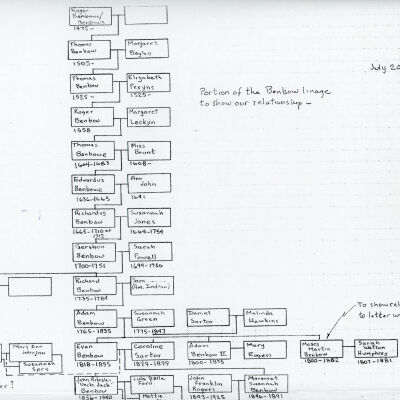 Roger
1475-
Thomas
Benbow
Margaret
1505-
July 20
Thomas
Benbow
Elizabeth
Peryns
1525-
1525-
Portion of the Benbow linage
to show our relationship -
Roger
Benbow
Margaret
Leckyn
1558
Thomas
Benbowe
Miss
Blount
1604-1683
1608-
Edwardus
Benbowe
Ann
John
1636-1665
1641
Richardus
Benbow
Susannah
Jones
1665-1710 or
1712
1664-1754
Gershon
Benbow
Sarah
Powell
1700-1751
1699-1750
Richard
Benbow
(Am. Indian)
1735-1784
To show rel
to letter w
Adam
Benbow
Susannah
Green
Daniel
Sartor
Malinda
Hawkins
1765-1835
1775-1847
Mary Ann
Johnson
Susannah
Spry
Evan
Benbow
Caroline
Sartor
Adam
Benbow II
Mary
Rogers
Moses
Martin
Benbow
Sarah
Humphrey
1818-1895
1829-1879
1800-1875
1800-1882
1807-1881
er?
John Ribelin
"Uncle Jack"
Benbow
Ford
Hattie
John
Franklin
Rogers
Margaret
Susannah
Benbow
1856-1940
1849-1925
1846-1891